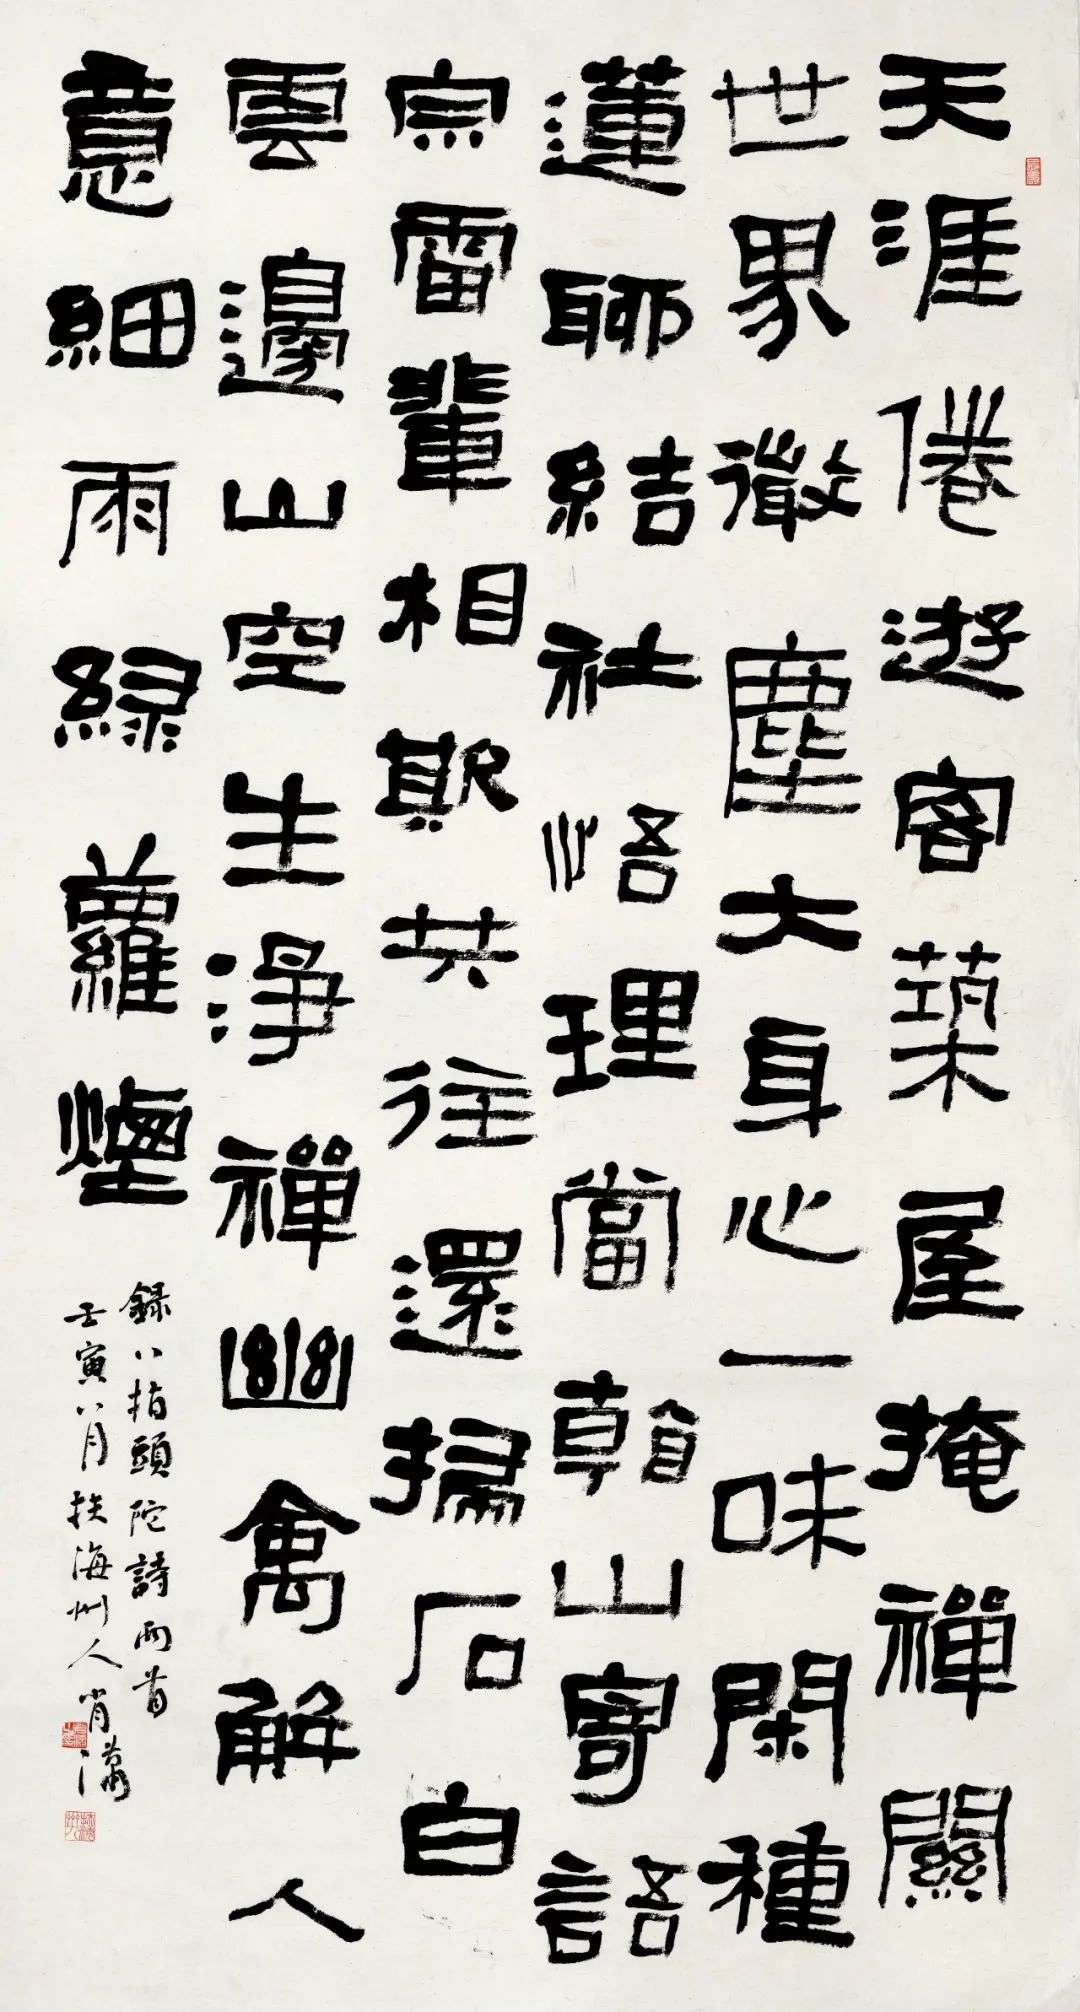 天涯倦遊客築屋掩禪關
世界微塵大身心一味閑種
蓮聊結社悟理當朝山寄語
宗雷輩相期共往還掃石白
雲邊山空生淨禪幽禽解人
意細雨綠蘿煙
錄八指頭陀詩兩首
壬寅八月扶海州人肖瀟